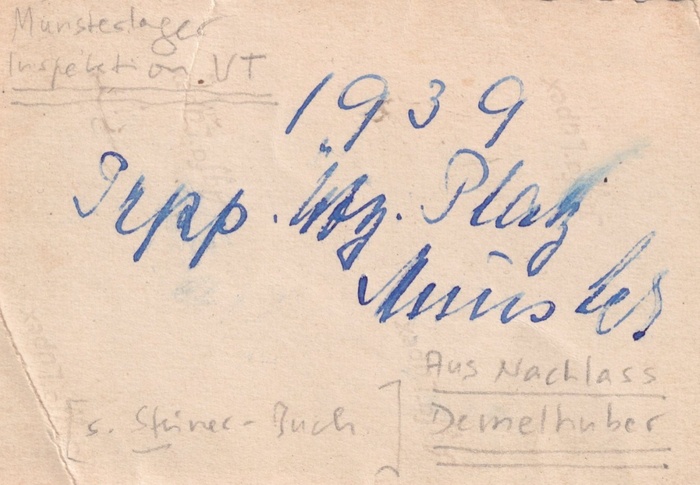 Münsterlager
Inspektion VT
1939
Trpp. Übg. Platz
Münster
Aus Nachlass
Demelhuber
[s. Steiner-Buch]